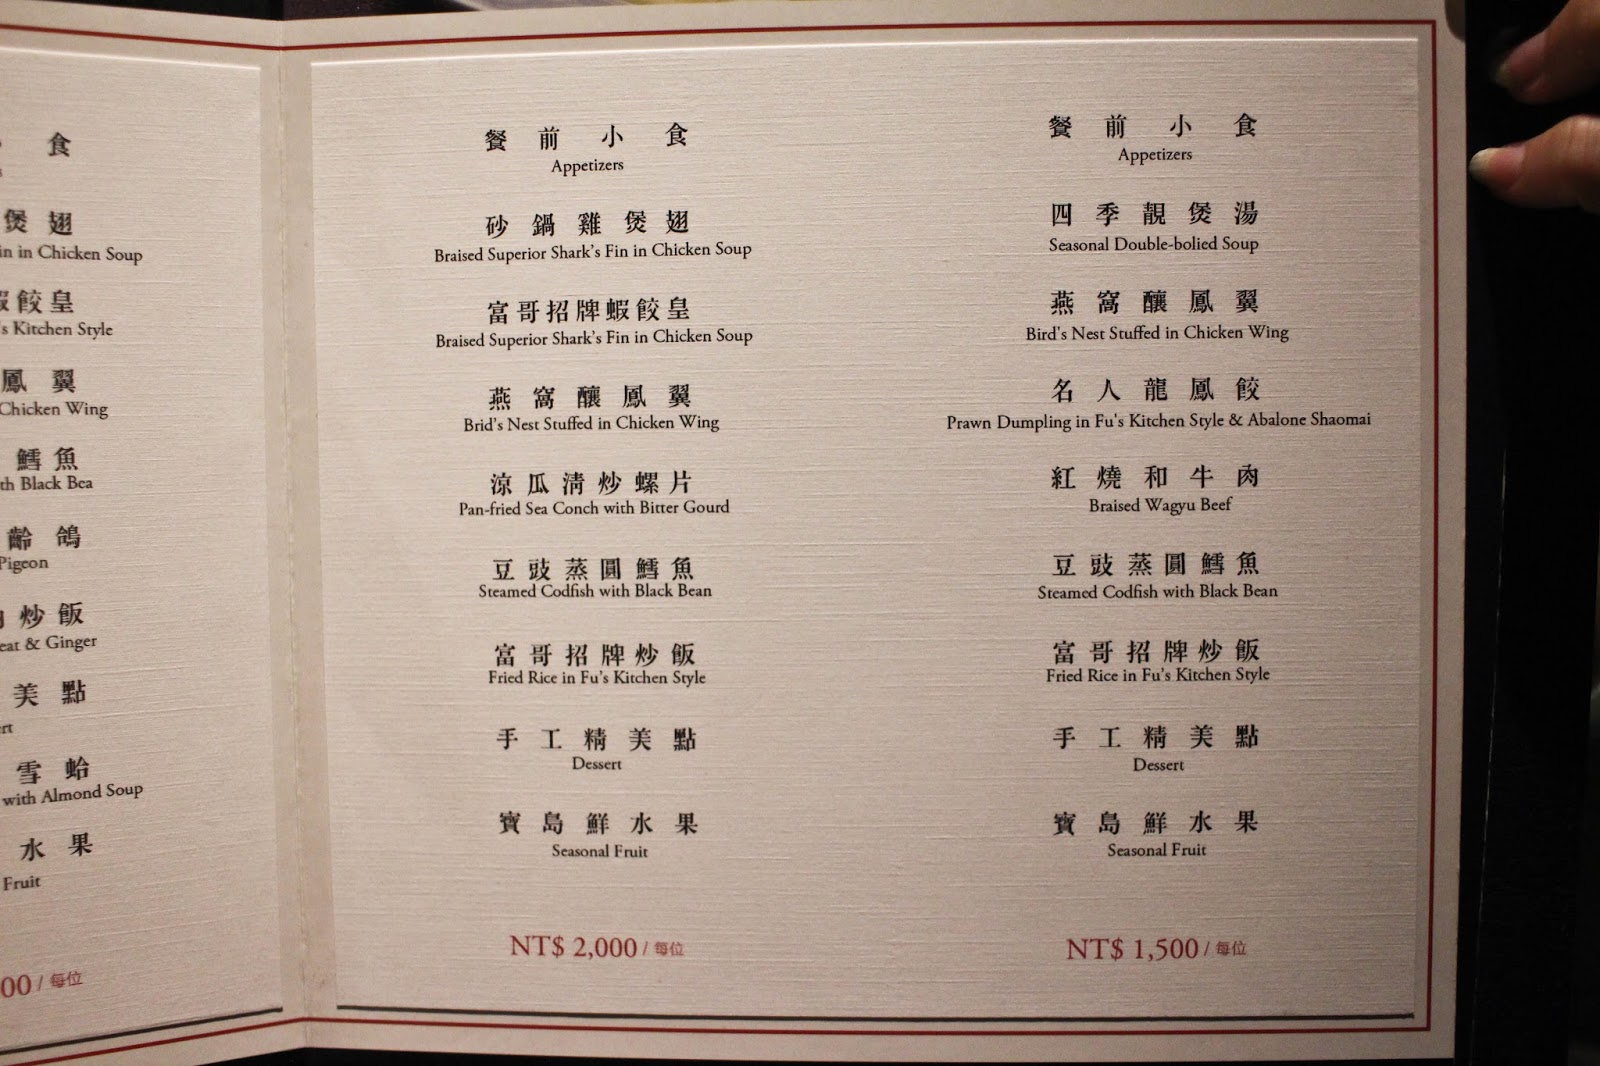 食
煲翅
in in Chicken Soup
蝦餃皇
's Kitchen Style
鳳翼
Chicken Wing
鱈魚
th Black Bea
齡鴿
Pigeon
炒飯
eat & Ginger
美點
rt
雪蛤
with Almond Soup
水果
Fruit
00 / 每位
餐前小食
Appetizers
砂鍋雞煲翅
Braised Superior Shark's Fin in Chicken Soup
富哥招牌蝦餃皇
Braised Superior Shark's Fin in Chicken Soup
燕窩釀鳳翼
Brid's Nest Stuffed in Chicken Wing
涼瓜清炒螺片
Pan-fried Sea Conch with Bitter Gourd
豆豉蒸圓鱈魚
Steamed Codfish with Black Bean
富哥招牌炒飯
Fried Rice in Fu's Kitchen Style
手工精美點
Dessert
寶島鮮水果
Seasonal Fruit
NT$ 2,000 / 每位
餐前小食
Appetizers
四季靚煲湯
Seasonal Double-bolied Soup
燕窩釀鳳翼
Bird's Nest Stuffed in Chicken Wing
名人龍鳳餃
Prawn Dumpling in Fu's Kitchen Style & Abalone Shaomai
紅燒和牛肉
Braised Wagyu Beef
豆豉蒸圓鱈魚
Steamed Codfish with Black Bean
富哥招牌炒飯
Fried Rice in Fu's Kitchen Style
手工精美點
Dessert
寶島鮮水果
Seasonal Fruit
NT$ 1,500 / 每位